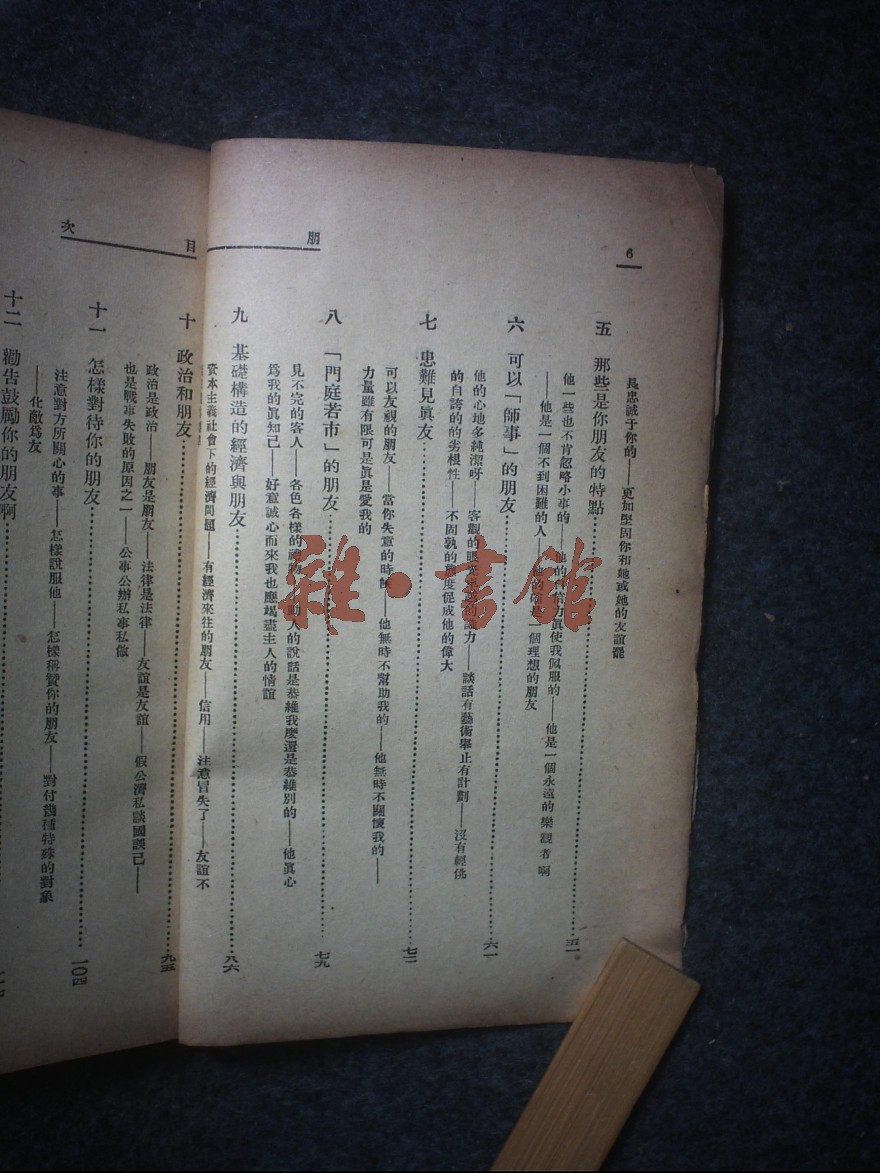 6
朋
是忠誠于你的——更加堅固你和她或她的友誼罷
五 那些是你朋友的特點 五一
他一些也不肯忽略小事的——他的信力眞使我佩服的——他是一個永遠的樂觀者啊
——他是一個不到困難的人——一個理想的朋友
六 可以「師事」的朋友 六一
他的心地多純潔呀——客觀的眼光力——談話有藝術舉止有計劃——沒有輕佛
的自誇的的劣根性——不固執的態度促成他的偉大
七 患難見眞友 七二
可以友視的朋友——當你失意的時候——他無時不幫助我的——他無時不關懷我的——
力量雖有限可是眞是愛我的
八 「門庭若市」的朋友 七九
見不完的客人——各色各樣的禮物——動人的說話是恭維我麽還是恭維別的——他眞心
爲我的眞知己——好意誠心而來我也應竭盡主人的情誼
九 基礎構造的經濟與朋友 八六
資本主義社會下的經濟問題——有經濟來往的朋友——信用——注意冒失了——友誼不
目 次
十 政治和朋友 九五
政治是政治——朋友是朋友——法律是法律——友誼是友誼——假公濟私談國談己——
也是戰事失敗的原因之一——公事公辦私事私做
十一 怎樣對待你的朋友 一〇四
注意對方所關心的事——怎樣說服他——怎樣稱贊你的朋友——對付幾種特殊的對象
——化敵爲友
十二 勸告鼓勵你的朋友啊
雜·書館